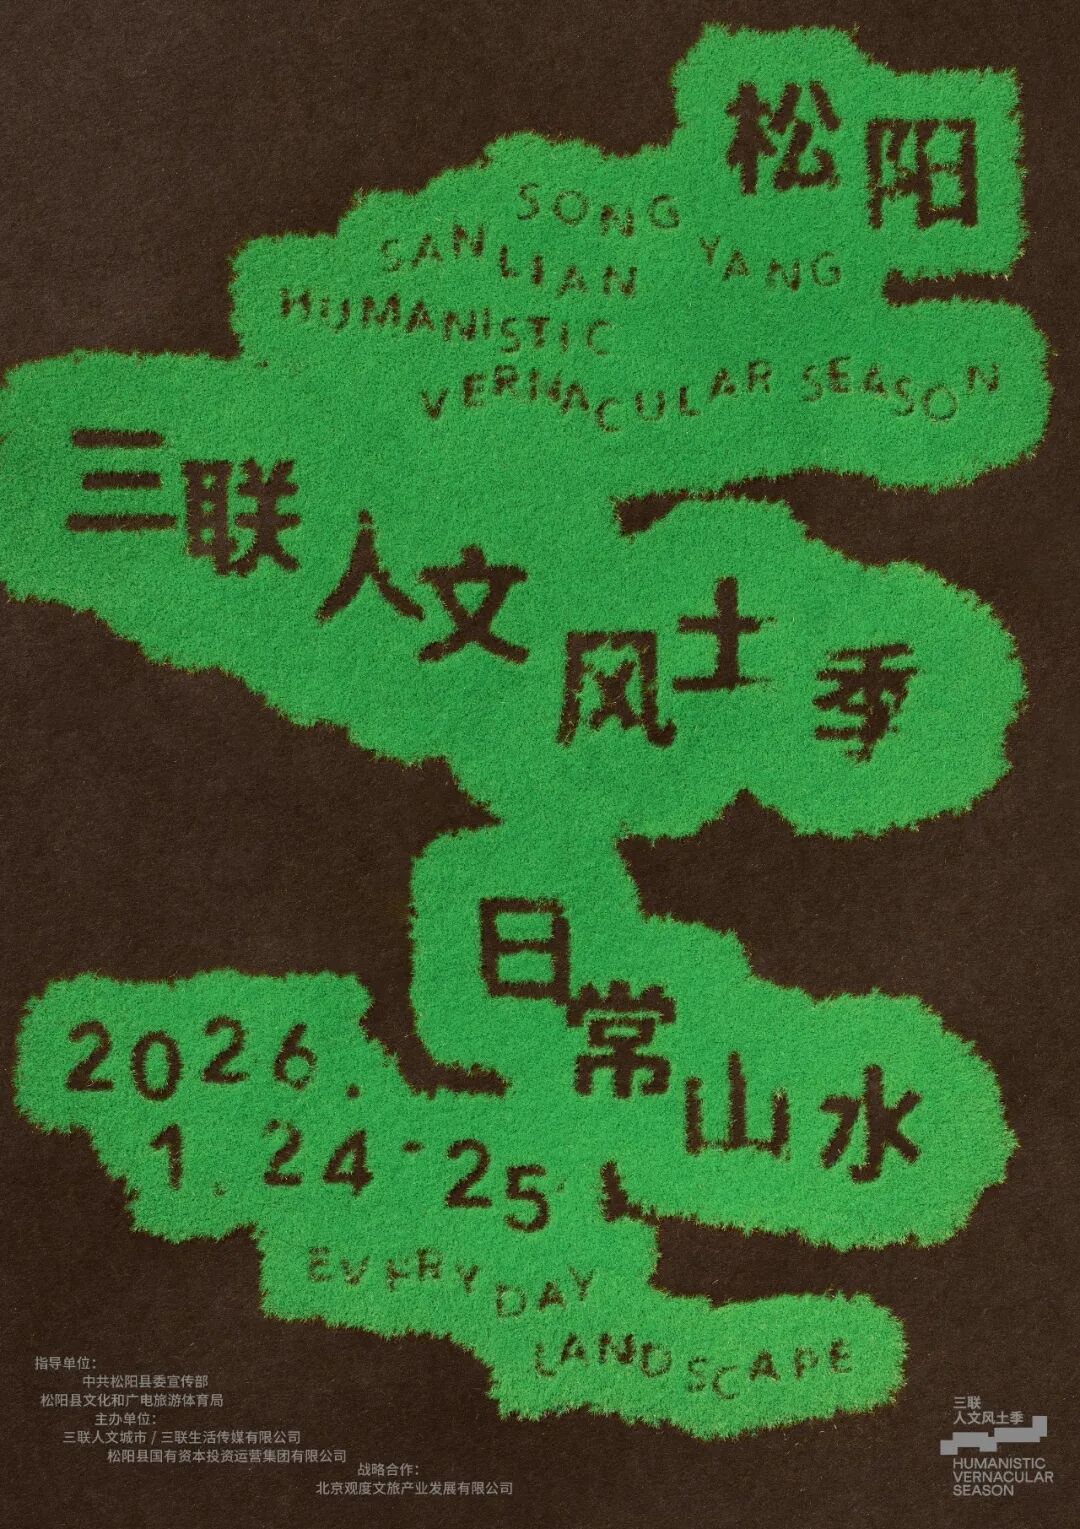 松阳
SONG YANG
SANLIAN
HUMANISTIC
VERNACULAR SEASON
三联人文风土季
日常山水
2026.
1.24-25
EVERYDAY
LANDSCAPE
指导单位：
中共松阳县委宣传部
松阳县文化和广电旅游体育局
主办单位：
三联人文城市 / 三联生活传媒有限公司
松阳县国有资本投资运营集团有限公司
战略合作：
北京观度文旅产业发展有限公司
三联
人文风土季
HUMANISTIC
VERNACULAR
SEASON